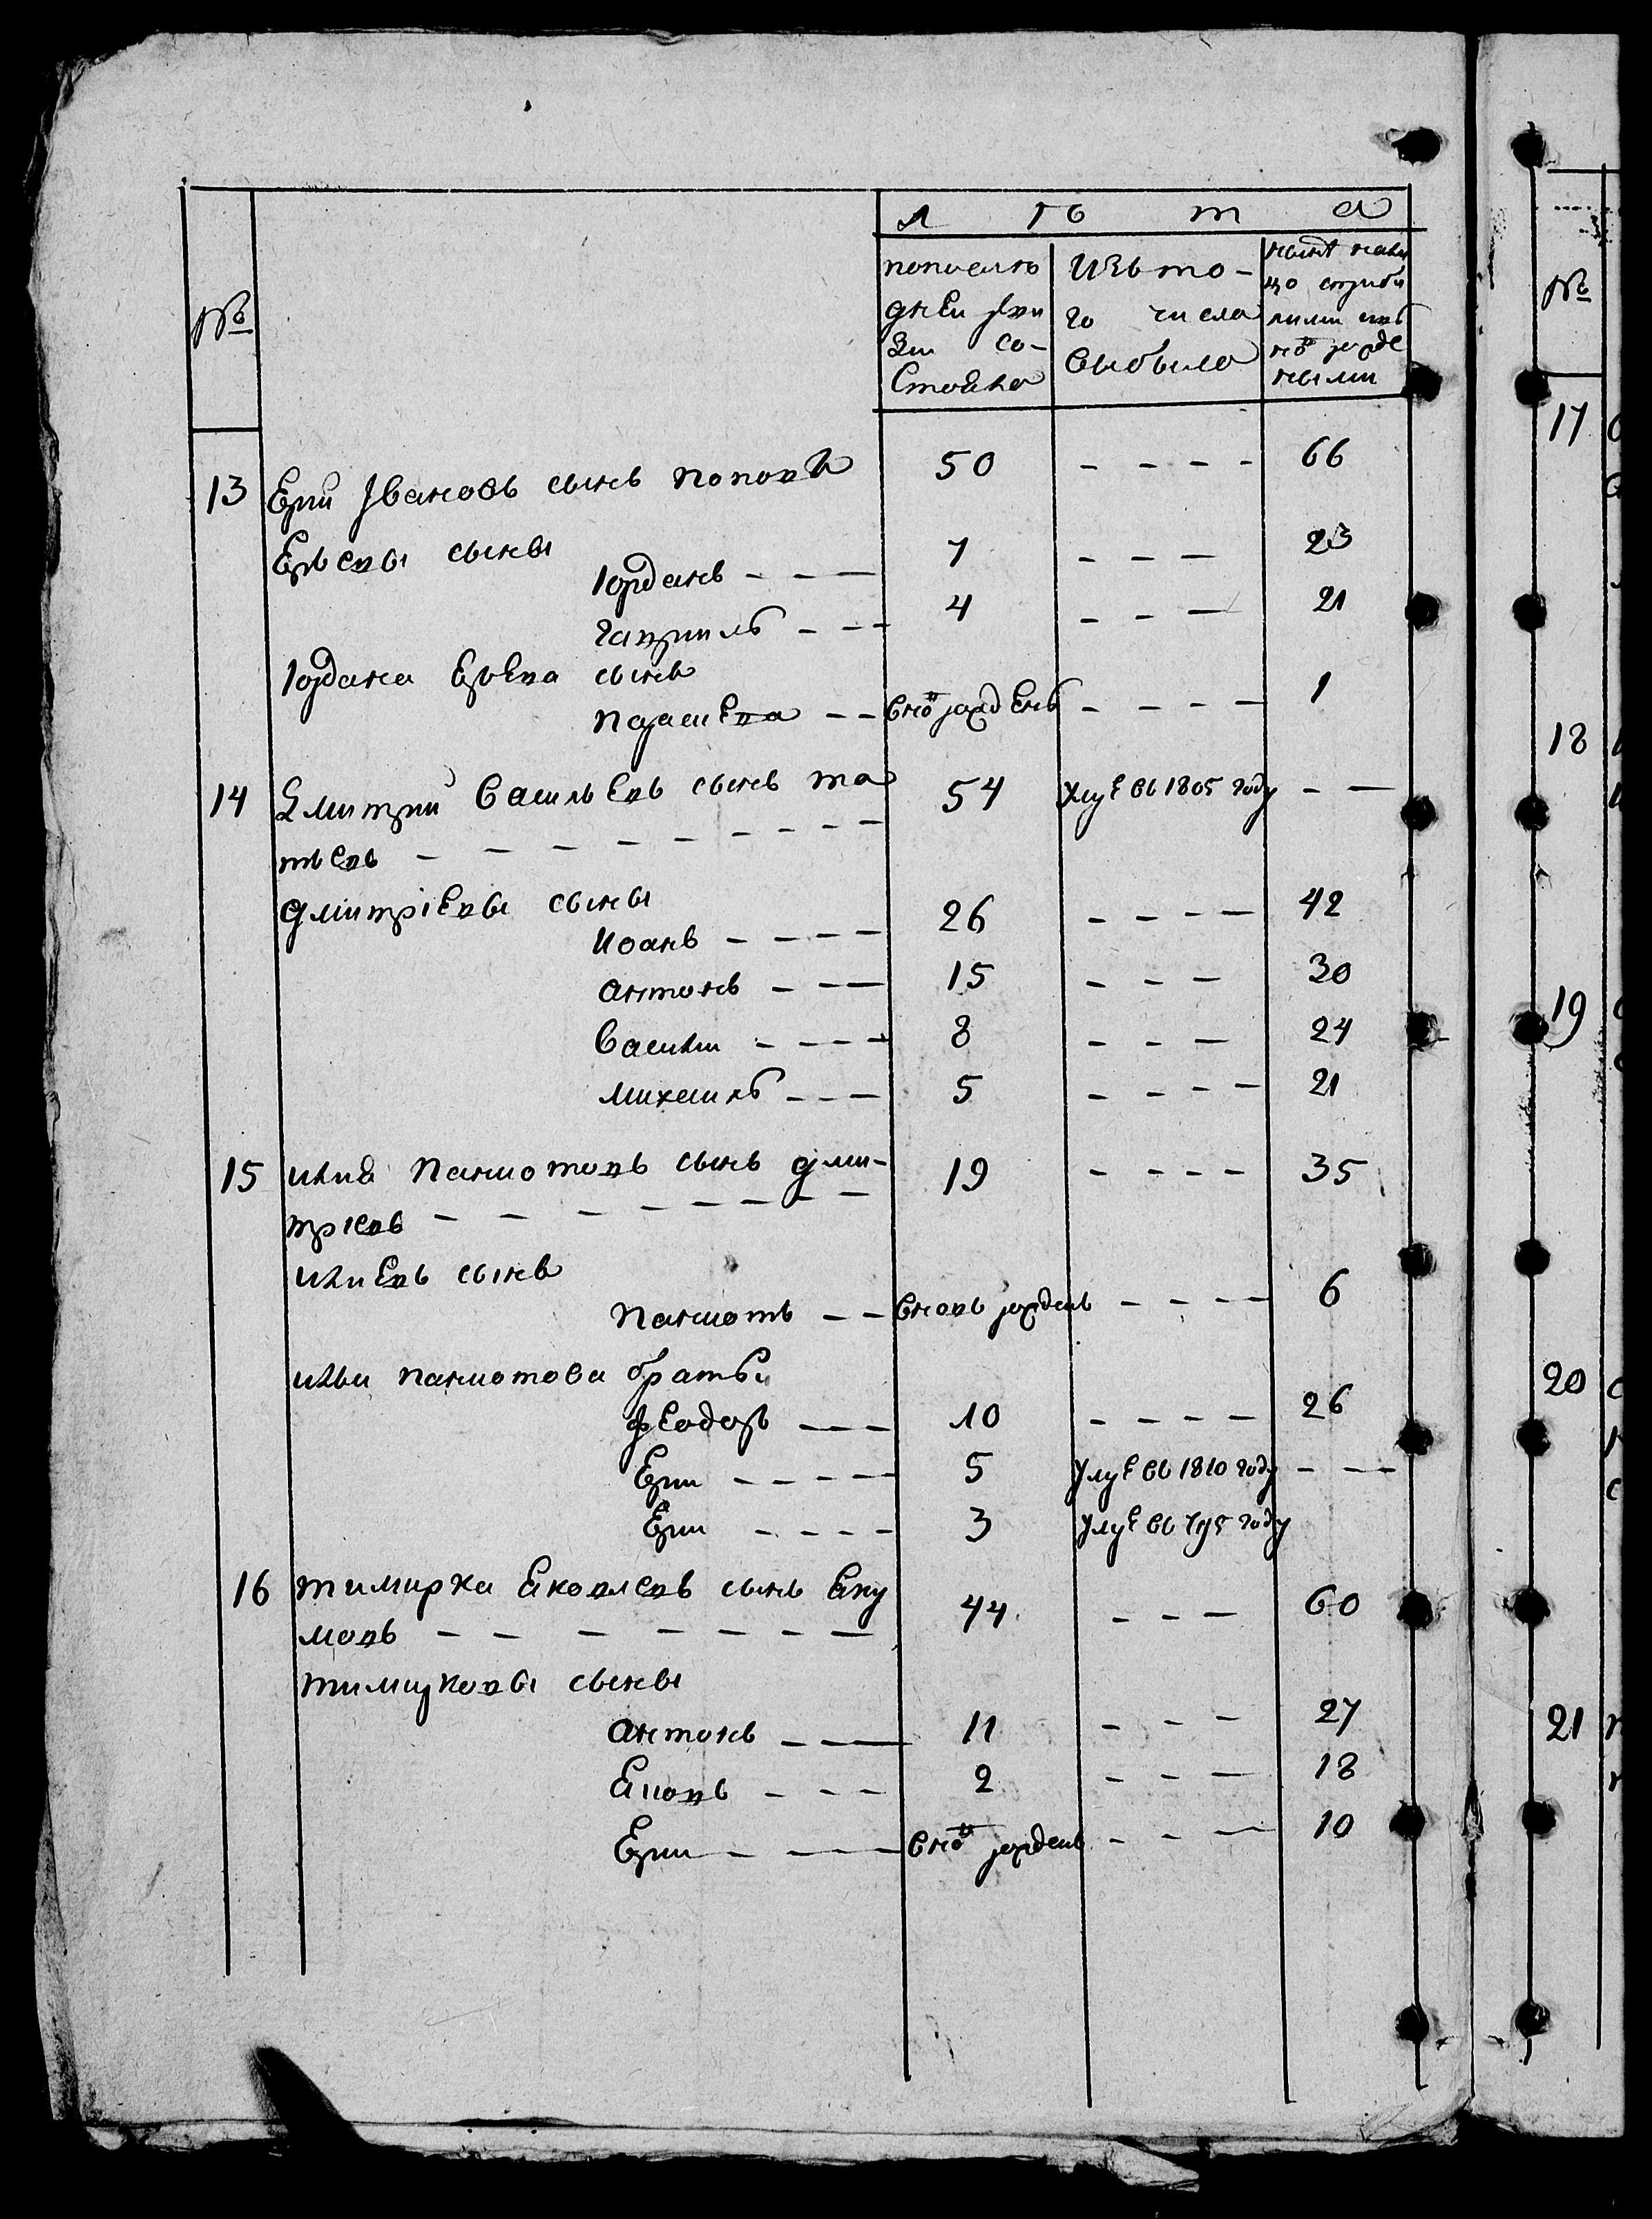 № Лѣта
по последней ревизии состояло
Изъ того числа выбыло
ныне налицо с прибылыми и вновь рожденными
13 Ерий Ивановъ сынъ Поповъ 50 - - - - 66
Ерьевы сыны
Юрданъ - - - 7 - - - 23
Гавриилъ - - - 4 - - - 21
Юрдана Ерьева сынъ
вновь рожденъ - - - - 1
14 Дмитрий Васильевъ сынъ та 54 въ 1805 году - -
тьевъ - - - - - - - -
Дмитрiевы сыны
Иоанъ - - - - 26 - - - - 42
Антонъ - - - 15 - - - 30
Василий - - - - 8 - - - 24
Михаилъ - - - 5 - - - - 21
15 Илиа Панютовъ сынъ Дми- 19 - - - - 35
трiевъ - - - - - - - -
Илиевъ сынъ
Панютъ - - вновь рожденъ - - - - 6
Ильи Панютова братьи
Феодоръ - - - 10 - - - - 26
Ерий - - - - 5 умре въ 1810 году - - -
Ерий - - - - 3 умре въ 795 году
16 Тимирка Яковлевъ сынъ Аку 44 - - - 60
мовъ - - - - - - - -
Тимирковы сыны
Антонъ - - - 11 - - - 27
- - - 2 - - - 18
Ерий - - - - вновь рожденъ - - - 10
№
17
18
19
20
21